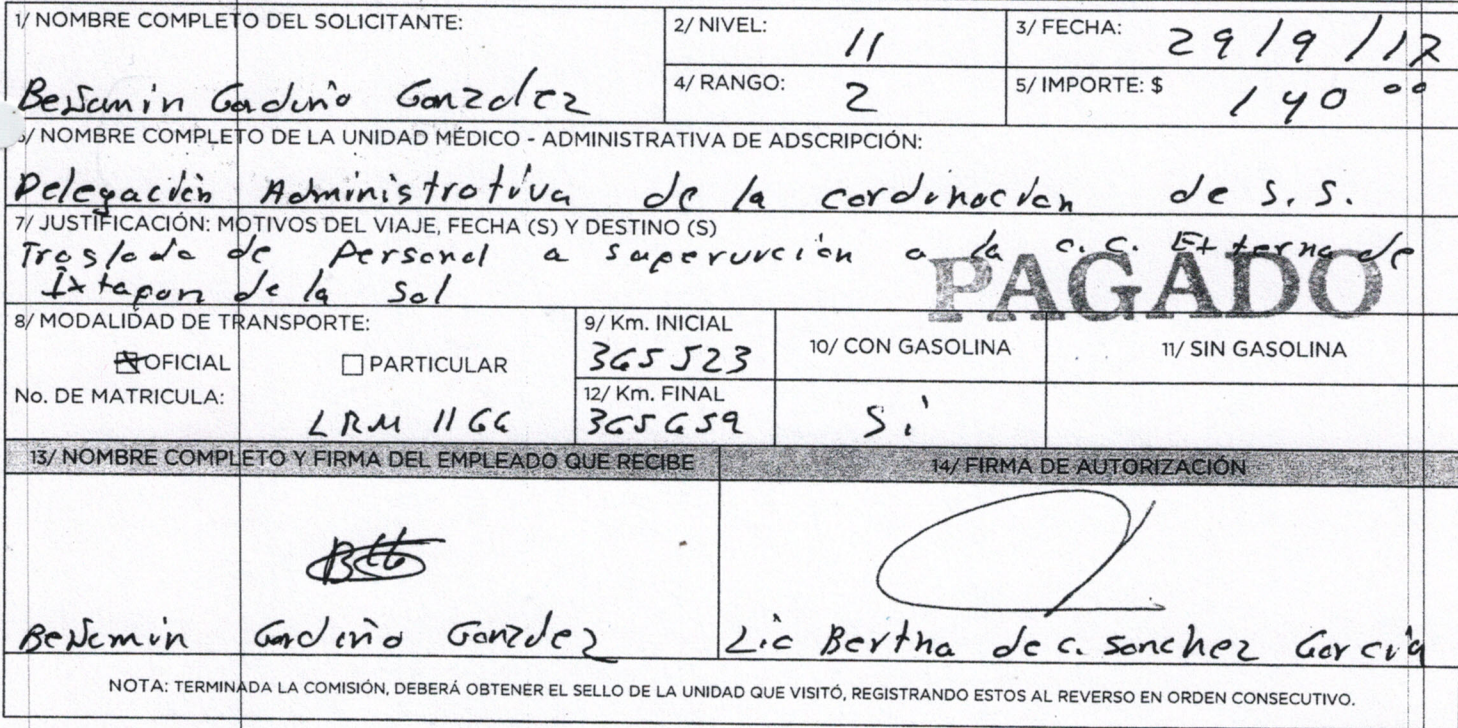 1/ NOMBRE COMPLETO DEL SOLICITANTE:
Benjamin Garduño Gonzalez
2/ NIVEL: 11
3/ FECHA: 29/9/12
4/ RANGO: 2
5/ IMPORTE: $ 140 00
6/ NOMBRE COMPLETO DE LA UNIDAD MÉDICO - ADMINISTRATIVA DE ADSCRIPCIÓN:
Delegación Administrativa de la cordinacion de S. S.
7/ JUSTIFICACIÓN: MOTIVOS DEL VIAJE, FECHA (S) Y DESTINO (S)
Traslado de Personal a supervicion a la C. C. Externa de
Ixtapan de la Sal
PAGADO
8/ MODALIDAD DE TRANSPORTE:
OFICIAL PARTICULAR
No. DE MATRICULA:
LRM 1166
9/ Km. INICIAL
365523
12/ Km. FINAL
365659
10/ CON GASOLINA
Si
11/ SIN GASOLINA
13/ NOMBRE COMPLETO Y FIRMA DEL EMPLEADO QUE RECIBE
Benjamin Garduño Gonzalez
14/ FIRMA DE AUTORIZACIÓN
Lic Bertha de C. Sanchez Garcia
NOTA: TERMINADA LA COMISIÓN, DEBERÁ OBTENER EL SELLO DE LA UNIDAD QUE VISITÓ, REGISTRANDO ESTOS AL REVERSO EN ORDEN CONSECUTIVO.